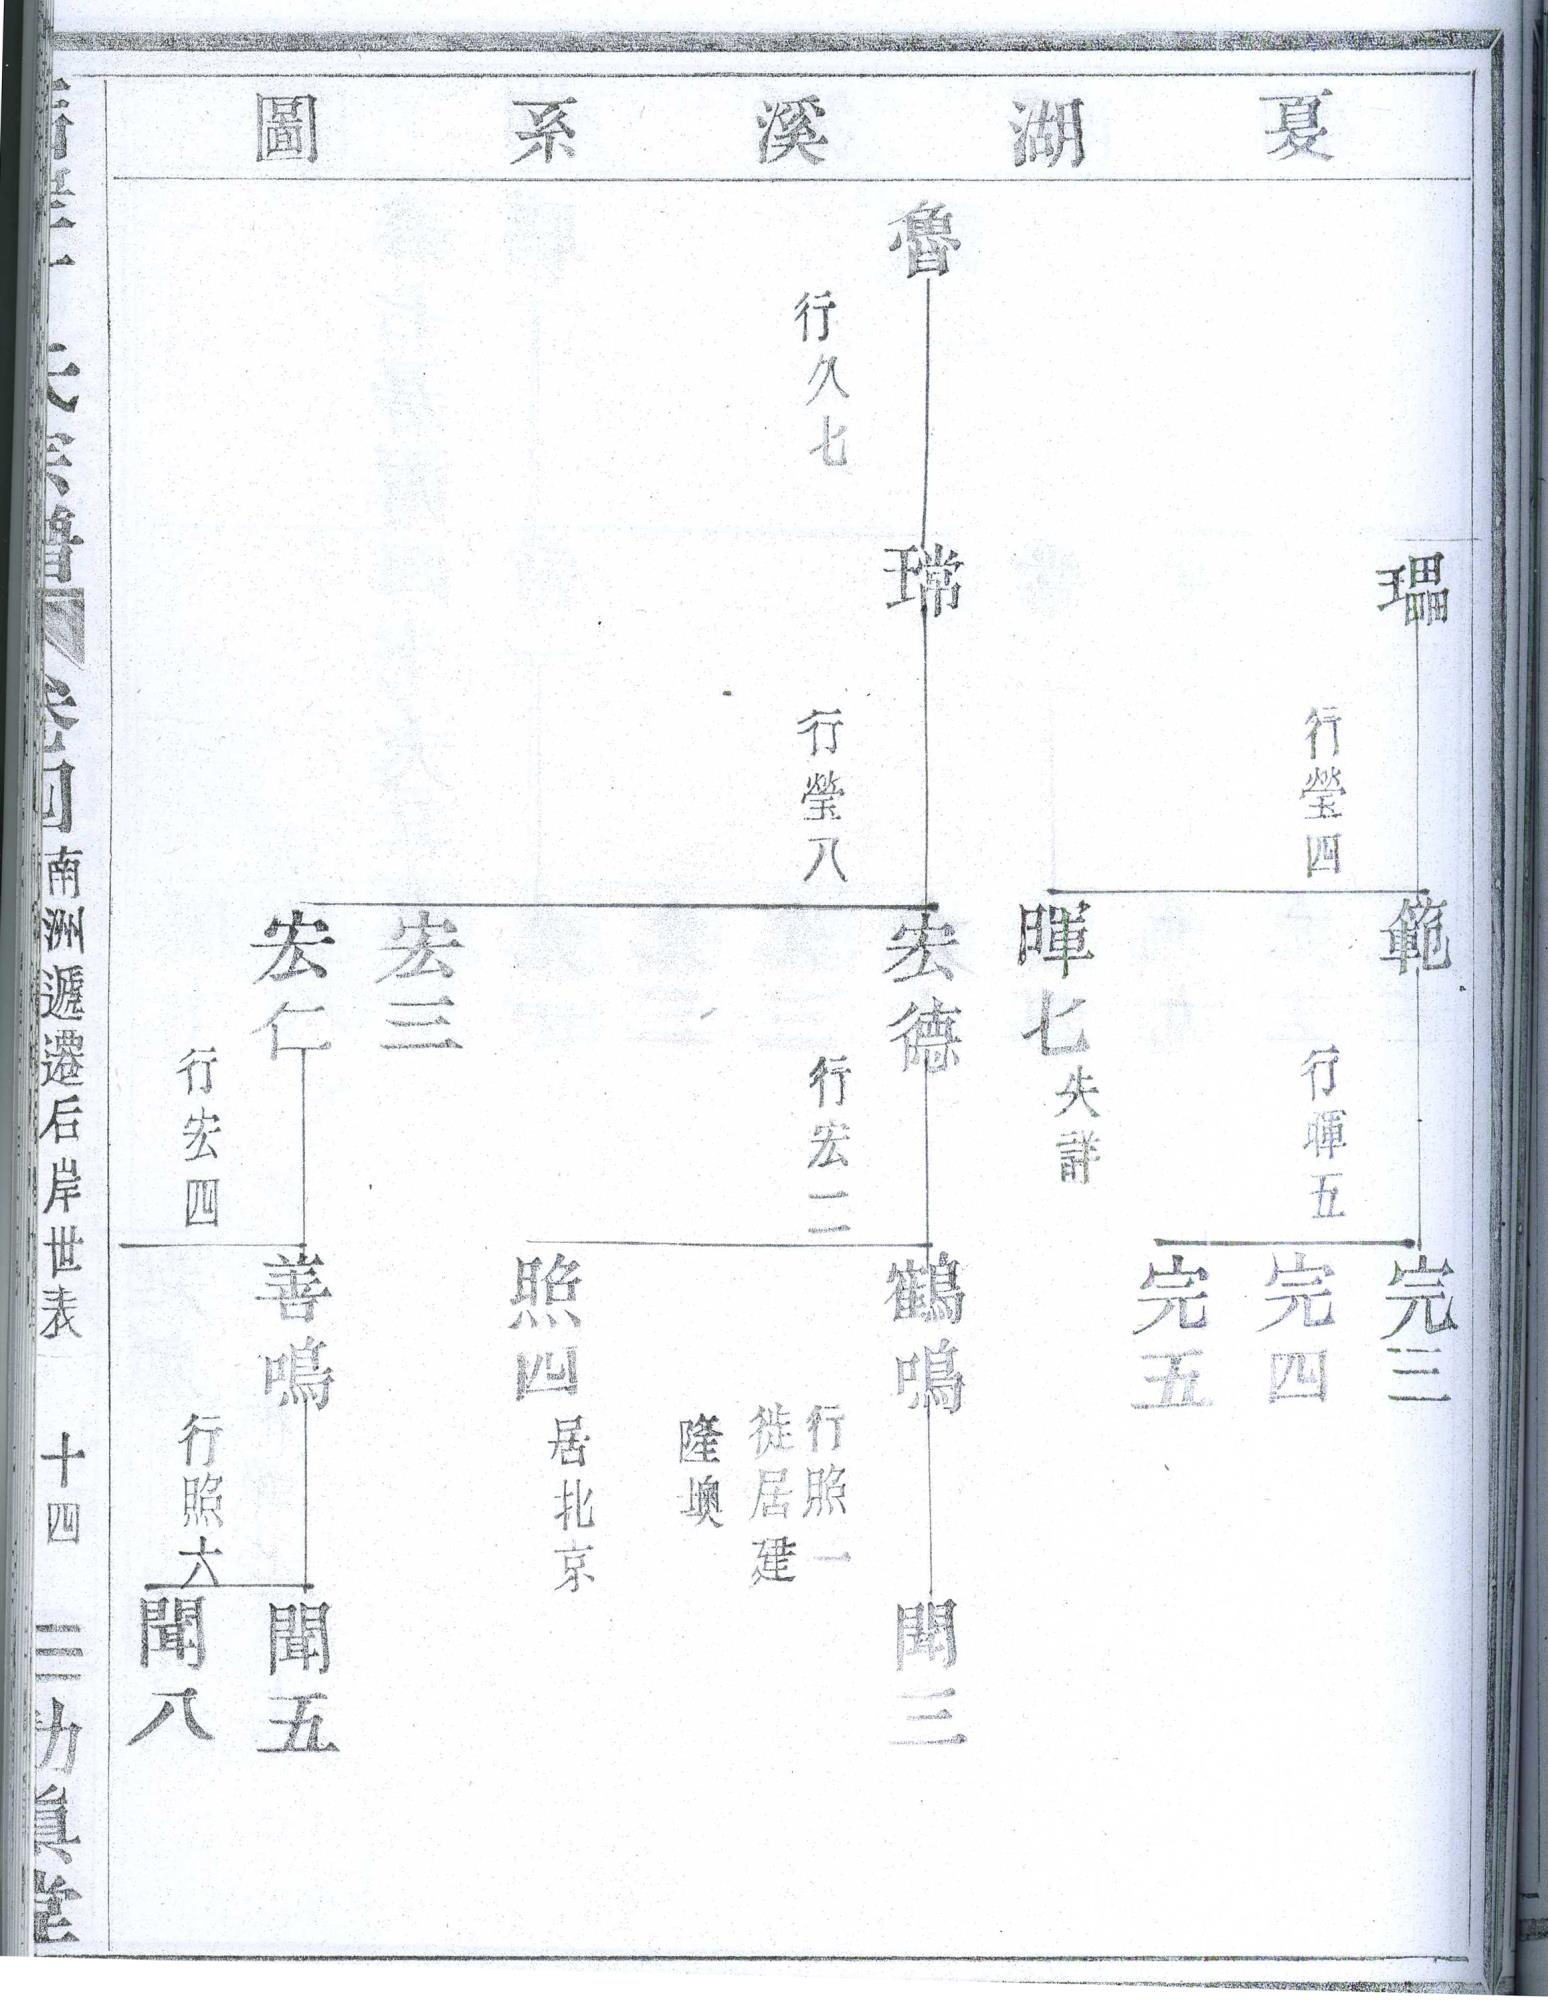 夏湖溪系圖
瑥
行瑩四
範
行暉五
完三
完四
完五
暉七
失詳
魯
行久七
瑺
行瑩八
宏德
行宏二
鶴鳴
行照一
徙居建
隆墺
聞三
照四
居北京
宏三
宏仁
行宏四
善鳴
行照六
聞五
聞八
宗譜
卷四
南洲遞遷后岸世表
十四